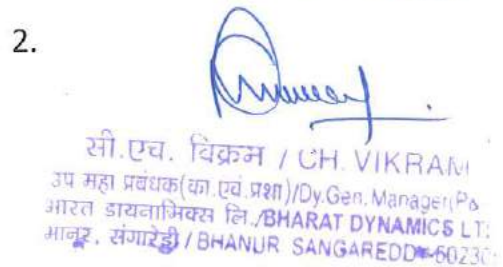 2.
सी.एच. विक्रम / CH. VIKRAM
उप महा प्रबंधक(का.एवं.प्रशा)/Dy.Gen. Manager(P&
भारत डायनामिक्स लि./BHARAT DYNAMICS LT
भानूर, संगारेड्डी / BHANUR SANGAREDD